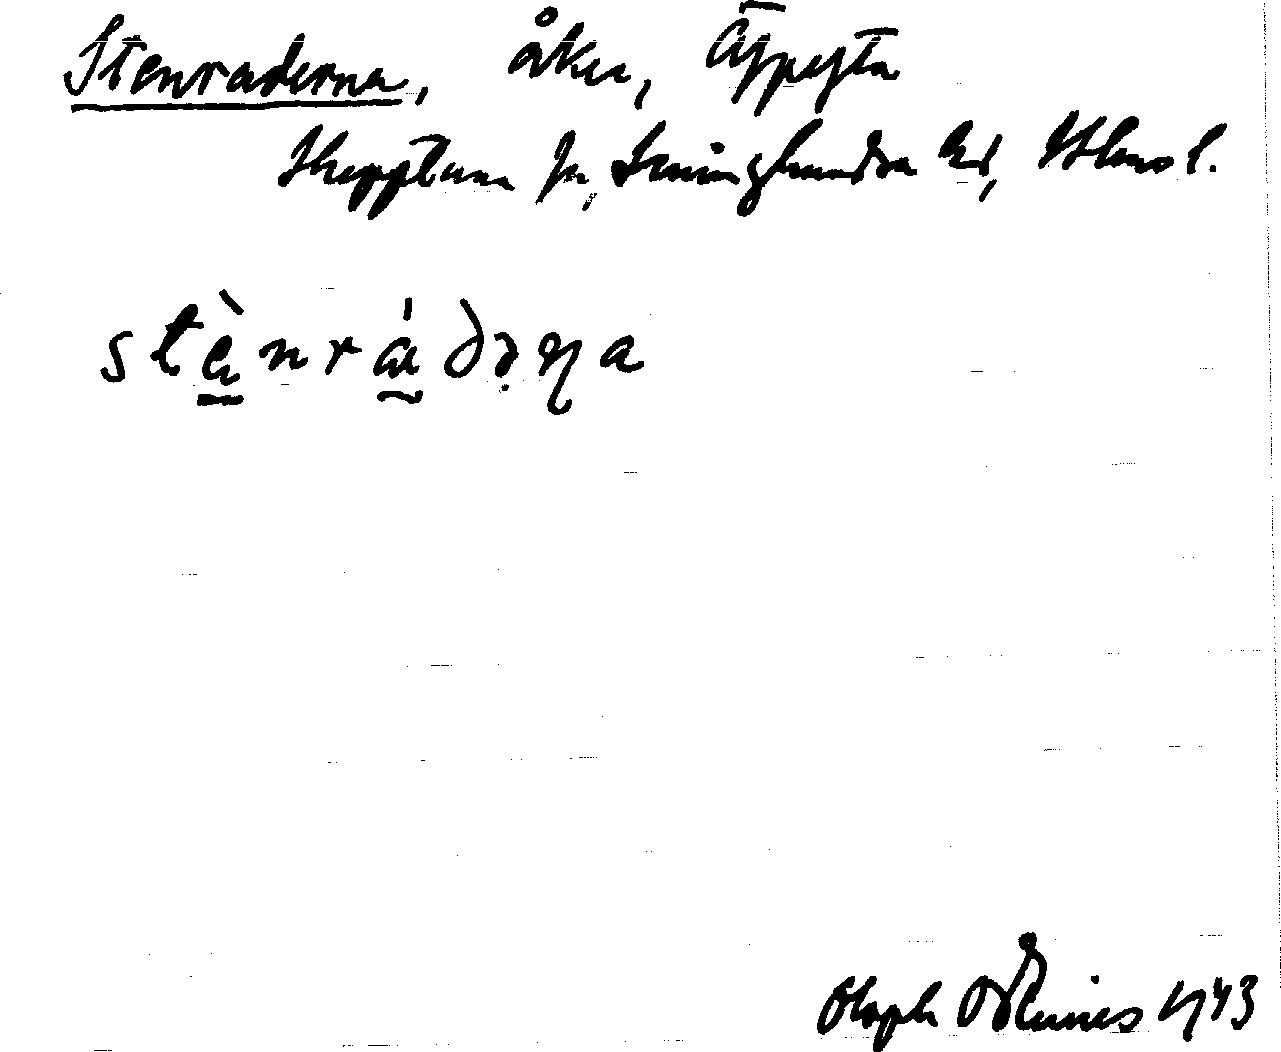 Stenraderna, åker, Äppesta
Skepptuna sn, Seminghundra hd, Sthms l.
stèn̠rá̰ðəṇa
Olaph Odenius 1943